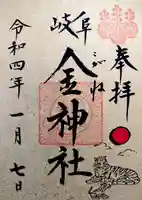 奉拝
岐阜
こがね
金神社
令和四年一月七日